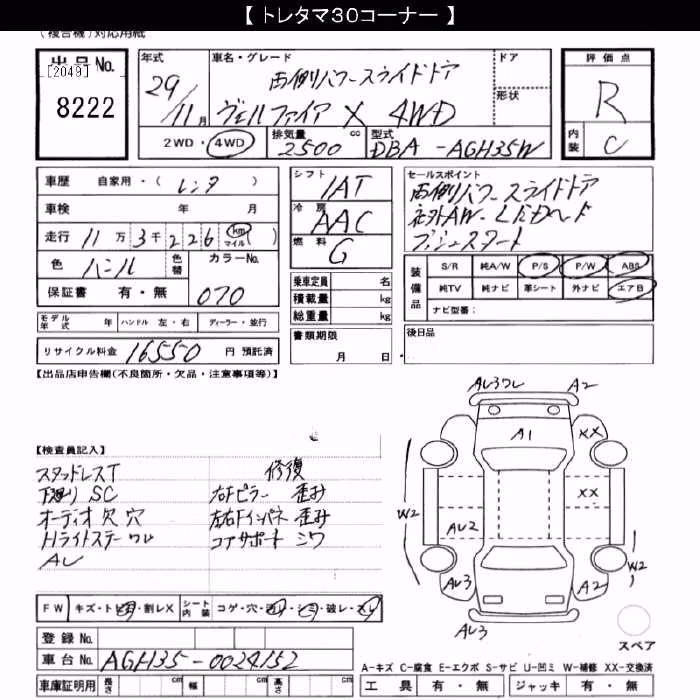 【 トレタマ３０コーナー 】
(複合機)対応用紙
出品No.
[2049]
8222
年式
29/11月
車名・グレード
両側パワースライドドア
ヴェルファイア X 4WD
ドア
形状
評価点
R
内装
C
2WD・4WD
排気量
2500 cc
型式
DBA-AGH35W
車歴 自家用・( レンタ )
車検 年 月
走行 11万3千226 km マイル ( )
色 パール 色替 カラーNo.
保証書 有・無 070
シフト
IAT
冷房
AAC
燃料
G
乗車定員 名
積載量 kg
総重量 kg
セールスポイント
両側パワースライドドア
社外AW・LEDヘッド
プッシュスタート
装備品
S/R 純A/W P/S P/W ABS
純TV 純ナビ 革シート 外ナビ エアB
ナビ型番:
モデル年式 年 ハンドル 左・右 ディーラー・並行
リサイクル料金 16550 円 預託済
書類期限
月 日
後日品
【出品店申告欄(不良箇所・欠品・注意事項等)】
【検査員記入】
スタッドレスT
下廻り SC
オーディオ欠 穴
Hライトステーワレ
AL
修復
右Fピラー 歪み
左右Fインパネ 歪み
コアサポート シワ
AL3ワレ
A2
A1
XX
XX
W2
AU2
W2
AL3
A2
AL3
スペア
FW キズ・トビ石・割レX シート内装 コゲ・穴・汚レ・シミ・破レ・スレ
登録No.
車台No. AGH35-0024152
車庫証明用 長さ cm 幅 cm 高さ cm
A-キズ C-腐食 E-エクボ S-サビ U-凹ミ W-補修 XX-交換済
工具 有・無 ジャッキ 有・無